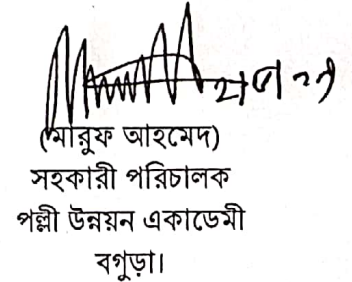 (মারুফ আহমেদ)
সহকারী পরিচালক
পল্লী উন্নয়ন একাডেমী
বগুড়া।